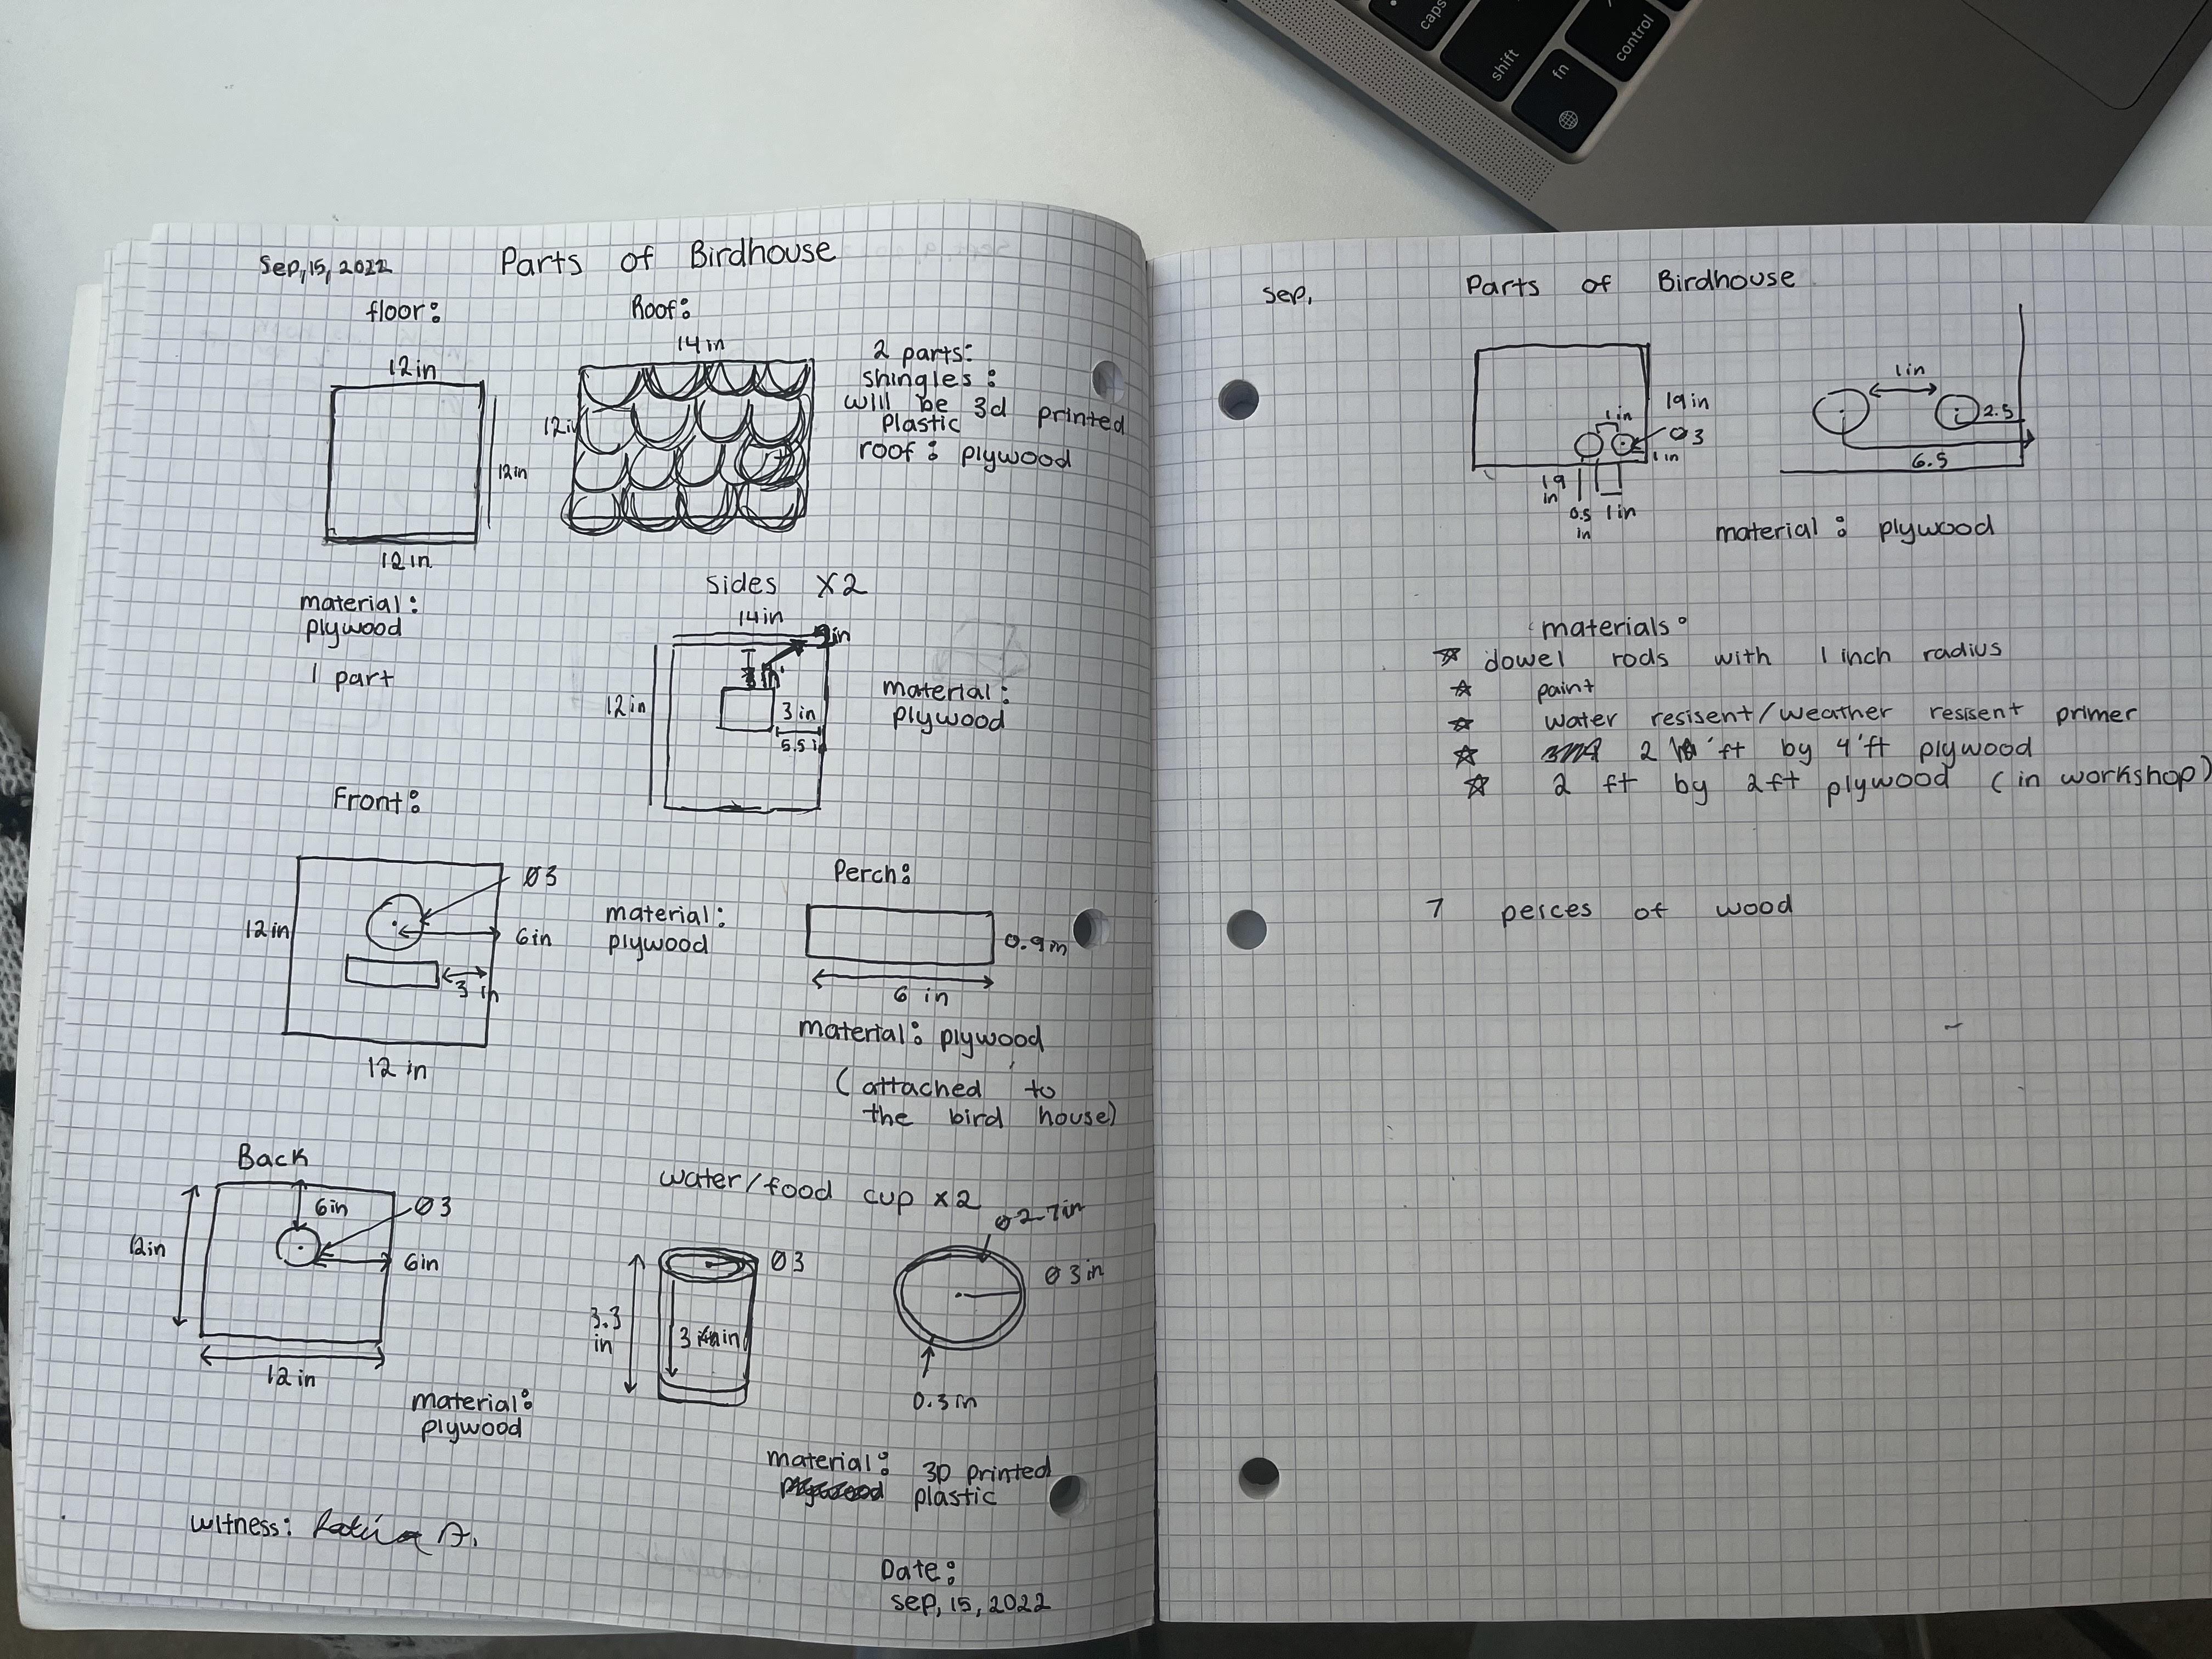 caps
shift
fn
control
Sep, 15, 2022
Parts of Birdhouse
floor:
12in
12in
12in
material:
plywood
1 part
Roof:
14in
12in
2 parts:
shingles:
will be 3d printed
plastic
roof: plywood
sides X2
14in
12in
3in
5.5in
material:
plywood
Front:
Ø3
12in
6in
3 in
12 in
material:
plywood
Perch:
0.9in
6 in
material: plywood
(attached to
the bird house)
Back
6in
Ø3
12in
6in
12in
material:
plywood
water/food cup x2
Ø3
3.3
in
3 in
Ø2.7in
Ø3in
0.3in
material: 3D printed
plastic
witness:
Date:
Sep, 15, 2022
Sep,
Parts of Birdhouse
1in
19in
Ø3
1in
19
in
0.5
in
1in
1in
2.5
6.5
material: plywood
materials:
☆ dowel rods with 1 inch radius
☆ paint
☆ water resisent/weather resisent primer
☆ 2 'ft by 4'ft plywood
☆ 2 ft by 2ft plywood (in workshop)
7 peices of wood